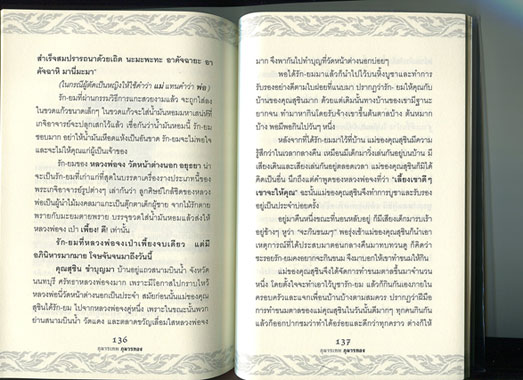 สำเร็จสมปรารถนาด้วยเถิด นะมะพะทะ อาคัจฉายะ อา
คัจฉาหิ มานีมะมา"
(ในกรณีผู้ตัดเป็นหญิงให้ใช้คำว่า แม่ แทนคำว่า พ่อ)
รัก-ยมที่ผ่านกรรมวิธีการแกะสวยงามแล้ว จะถูกใส่ลง
ในขวดแก้วขนาดเล็กๆ ในขวดแก้วจะใส่น้ำมันหอมมหาเสน่ห์ที่
เกจิอาจารย์จะปลุกเสกไว้แล้ว เชื่อกันว่าน้ำมันหอมนี้ รัก-ยม
ชอบมาก อย่าให้น้ำมันเหือดแห้งเป็นอันขาด รัก-ยมจะไม่พอใจ
และจะไม่ให้คุณแก่ผู้เป็นเจ้าของ
รัก-ยมของ หลวงพ่อจง วัดหน้าต่างนอก อยุธยา น่า
จะเป็นรัก-ยมที่เก่าแก่ที่สุดในบรรดาเครื่องรางประเภทนี้ของ
พระเกจิอาจารย์รูปต่างๆ เล่ากันว่า ลูกศิษย์ใกล้ชิดของหลวง
พ่อเป็นผู้นำไม้มงคลมาแกะเป็นตุ๊กตาเด็กผู้ชาย จากไม้รักตาย
พรายกับมะยมตายพราย บรรจุขวดใส่น้ำมันหอมแล้วส่งให้
หลวงพ่อจง เป่า เพี้ยง! ดี! เท่านั้น
รัก-ยมที่หลวงพ่อจงเป่าเพี้ยงจบเดียว แต่มี
อภินิหารมากมาย โจษจันจนมาถึงวันนี้
คุณสุชิน ชำบุญมา บ้านอยู่แถวสนามบินน้ำ จังหวัด
นนทบุรี ศรัทธาหลวงพ่อจงมาก เพราะมีโอกาสไปกราบไหว้
หลวงพ่อนี่วัดหน้าต่างนอกเป็นประจำ สมัยก่อนนั้นแม่ของคุณ
สุชินได้รัก-ยม ไปจากหลวงพ่อจงคู่หนึ่ง เพราะในขณะนั้นพวก
ย่านสนามบินน้ำ วัดแดง และตลาดขวัญเลื่อมใสหลวงพ่อจง
136
กุมารเทพ กุมารทอง
มาก จึงพากันไปทำบุญที่วัดหน้าต่างนอกบ่อยๆ
พอได้รัก-ยมมาแล้วก็นำไปไว้บนหิ้งบูชาและทำการ
รับรองอย่างดีตามใบฝอยที่แนบมา ปรากฏว่ารัก-ยมให้คุณกับ
บ้านของคุณสุชินมาก ด้วยแต่เดิมนั้นทางบ้านของเขามีฐานะ
ยากจน ทำมาหากินโดยรับจ้างเขาขึ้นต้นตาลบ้าง ต้นหมาก
บ้าง พอมีพอกินไปวันๆ หนึ่ง
หลังจากที่ได้รัก-ยมมาไว้ที่บ้าน แม่ของคุณสุชินมีความ
รู้สึกว่าในเวลากลางคืน เหมือนมีเด็กมาวิ่งเล่นกันอยู่บนบ้าน มี
เสียงเดินและเสียงเล่นกันอยู่ตลอดเวลา แม่ของคุณสุชินก็มิได้
คิดเป็นอื่น นึกถึงแต่คำพูดของหลวงพ่อจงที่ว่า "เลี้ยงเขาดีๆ
เขาจะให้คุณ" ฉะนั้นแม่ของคุณสุชินจึงทำการบูชาและรับรอง
อยู่เป็นประจำบ่อยครั้ง
อยู่มาคืนหนึ่งขณะที่นอนหลับอยู่ ก็มีเสียงเด็กมาร้องเร้า
อยู่ข้างๆ หูว่า "จะกินขนมๆ" พอรุ่งเช้าแม่ของคุณสุชินก็เอา
เหตุการณ์ที่ได้ประสบมาตอนกลางคืนมาทบทวนดู ก็คิดว่า
ชะรอยรัก-ยมคงอยากจะกินขนม จึงมาบอกให้เขาทำขนมให้กิน
แม่ของคุณสุชินจึงได้จัดการทำขนมตาลขึ้นมาจำนวน
หนึ่ง โดยตั้งใจจะทำเอาไว้บูชารัก-ยม แล้วก็กินกันเองภายใน
ครอบครัวและแจกเพื่อนบ้านบ้างตามสมควร ปรากฏว่าฝีมือ
การทำขนมตาลของแม่คุณสุชินในวันนั้นดีมากๆ ทุกคนกินกัน
แล้วก็ออกปากชมว่าทำได้อร่อยและดีกว่าทุกคราว ต่างก็ให้
137
กุมารเทพ กุมารทอง